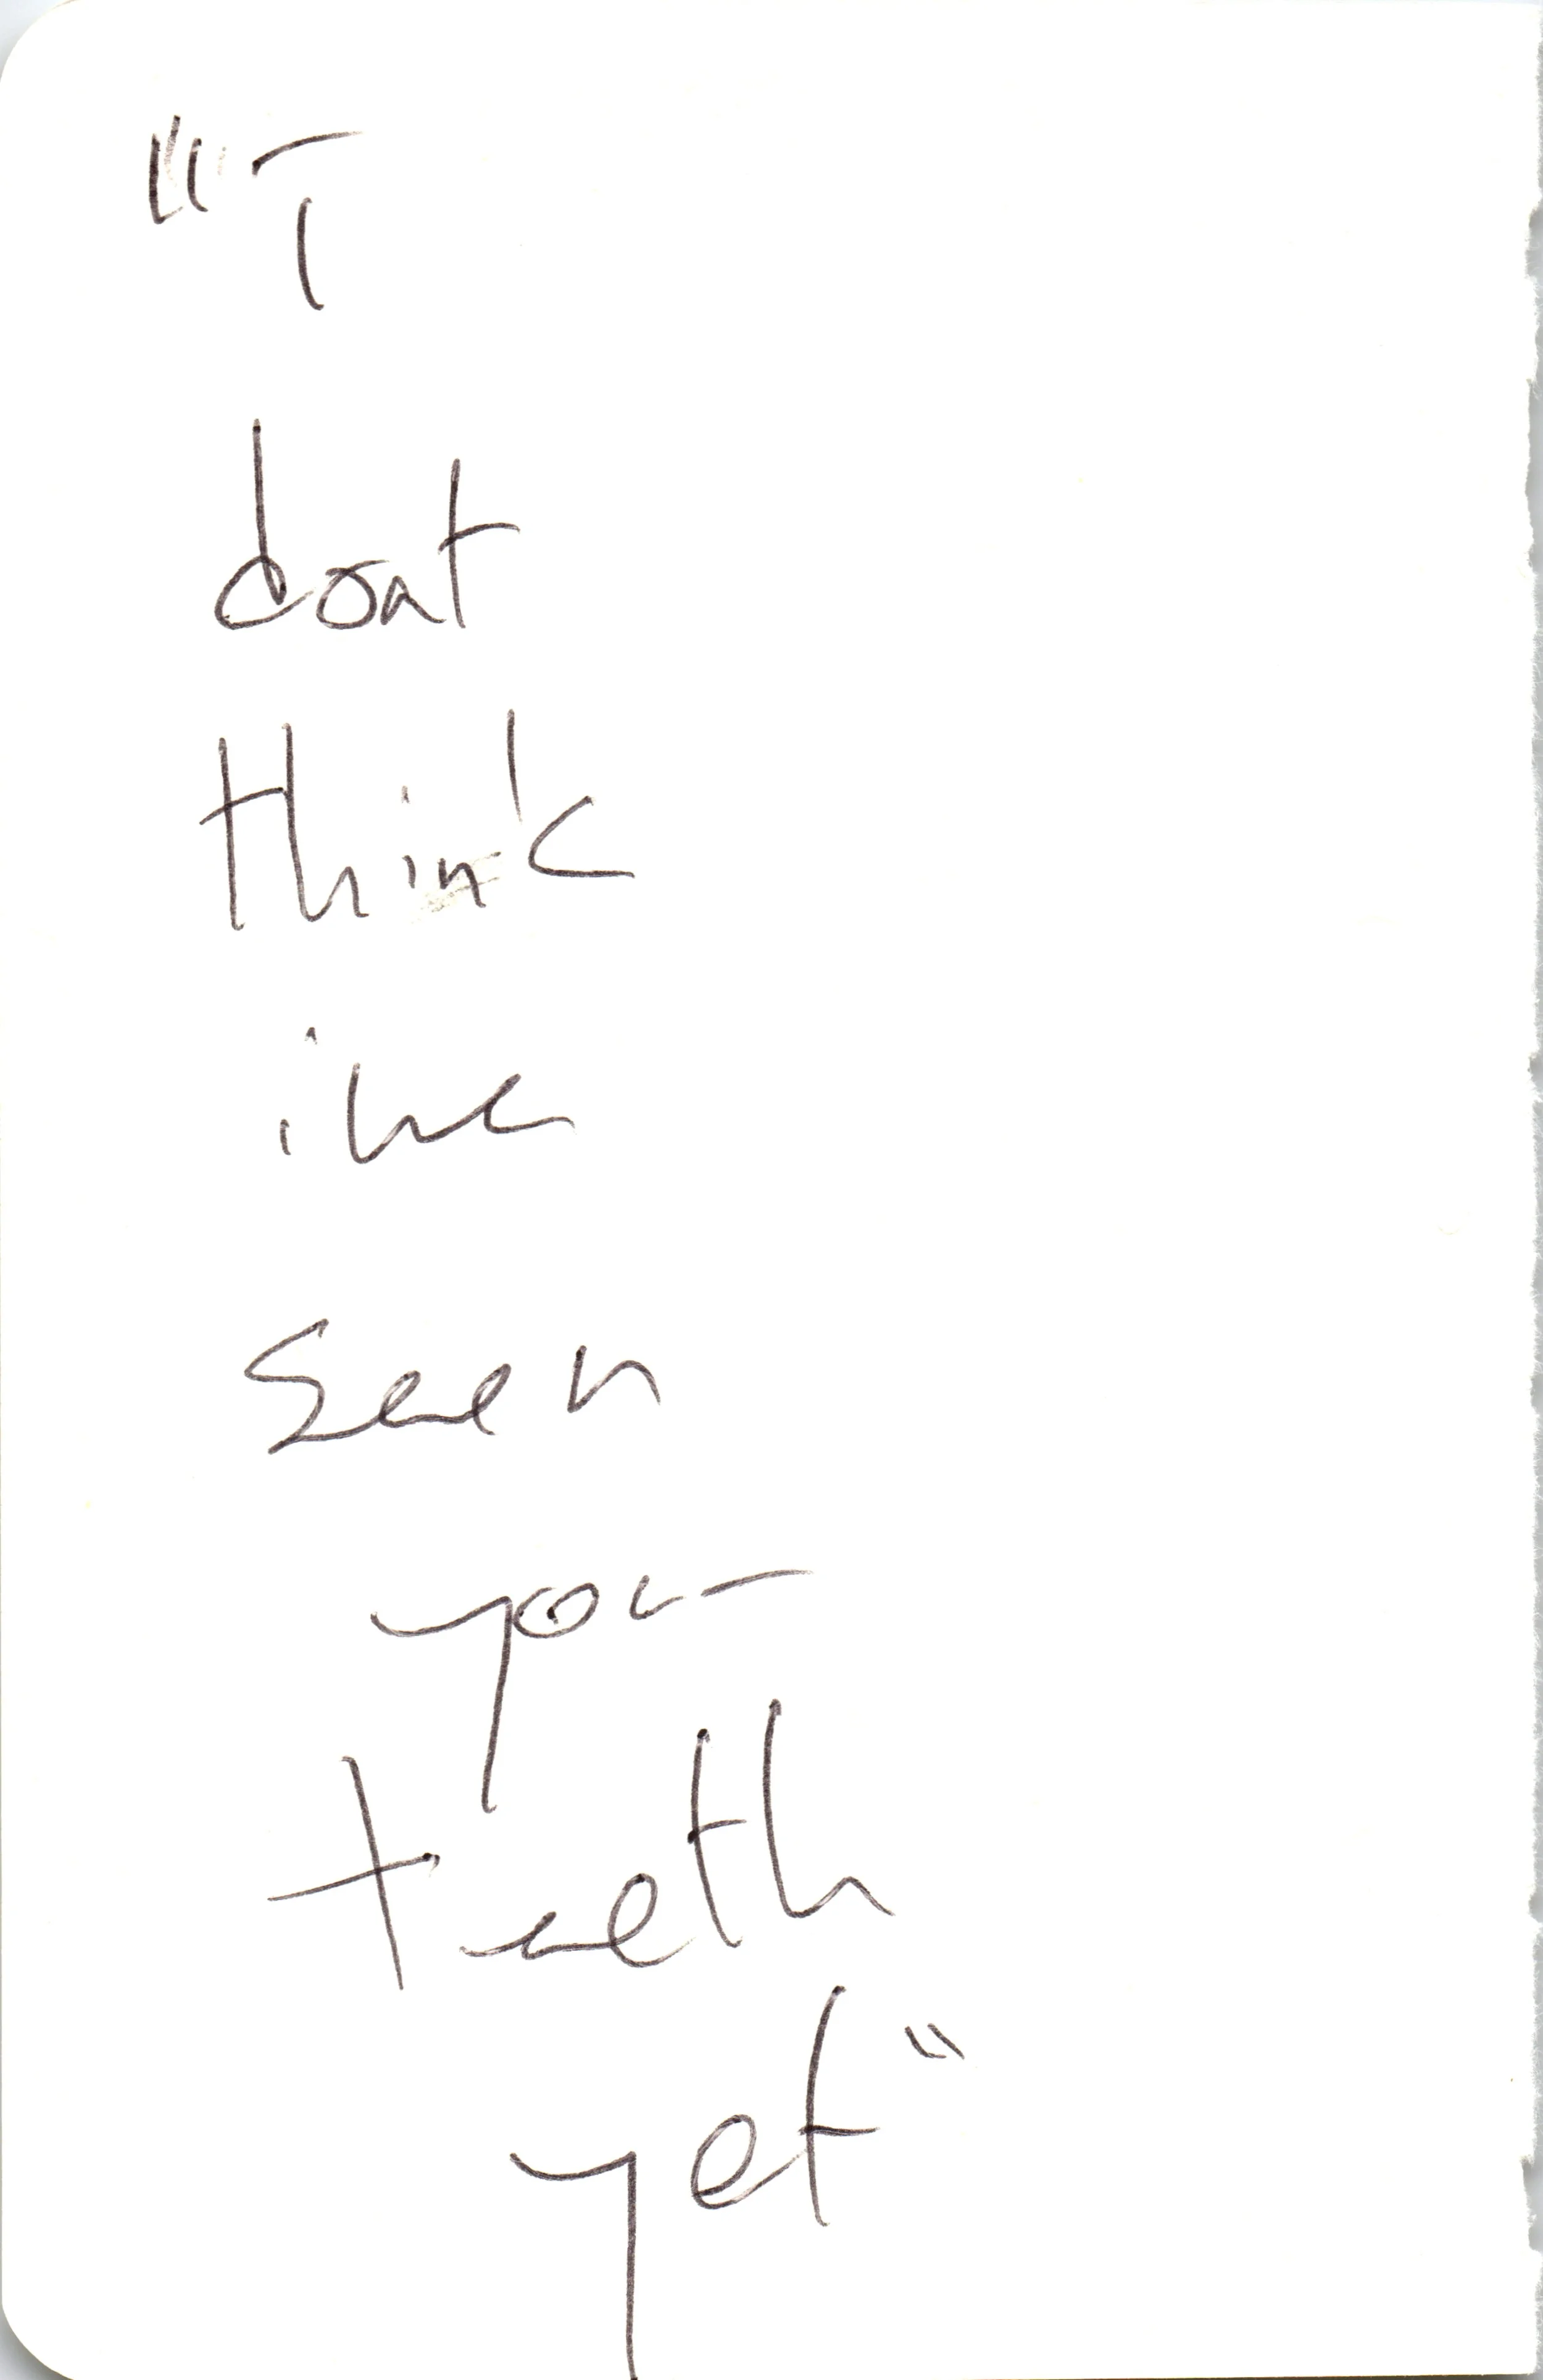 "I
dont
think
ive
seen
your
teeth
yet"